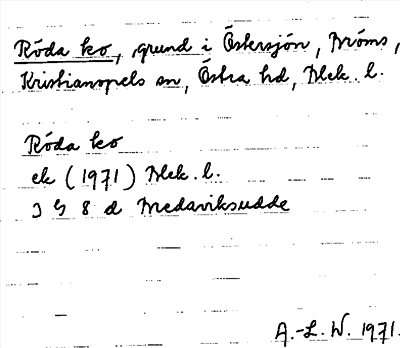 Röda ko, grund i Östersjön, Bröms,
Kristianopels sn, Östra hd, Blek. l.
Röda ko
ek (1971) Blek. l.
3 G 8 d Bredaviksudde
A.-L. W. 1971.